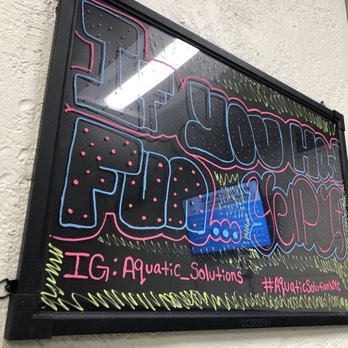 If you Had
Fun... Yelp
IG: Aquatic_Solutions
#AquaticSolutionNYC